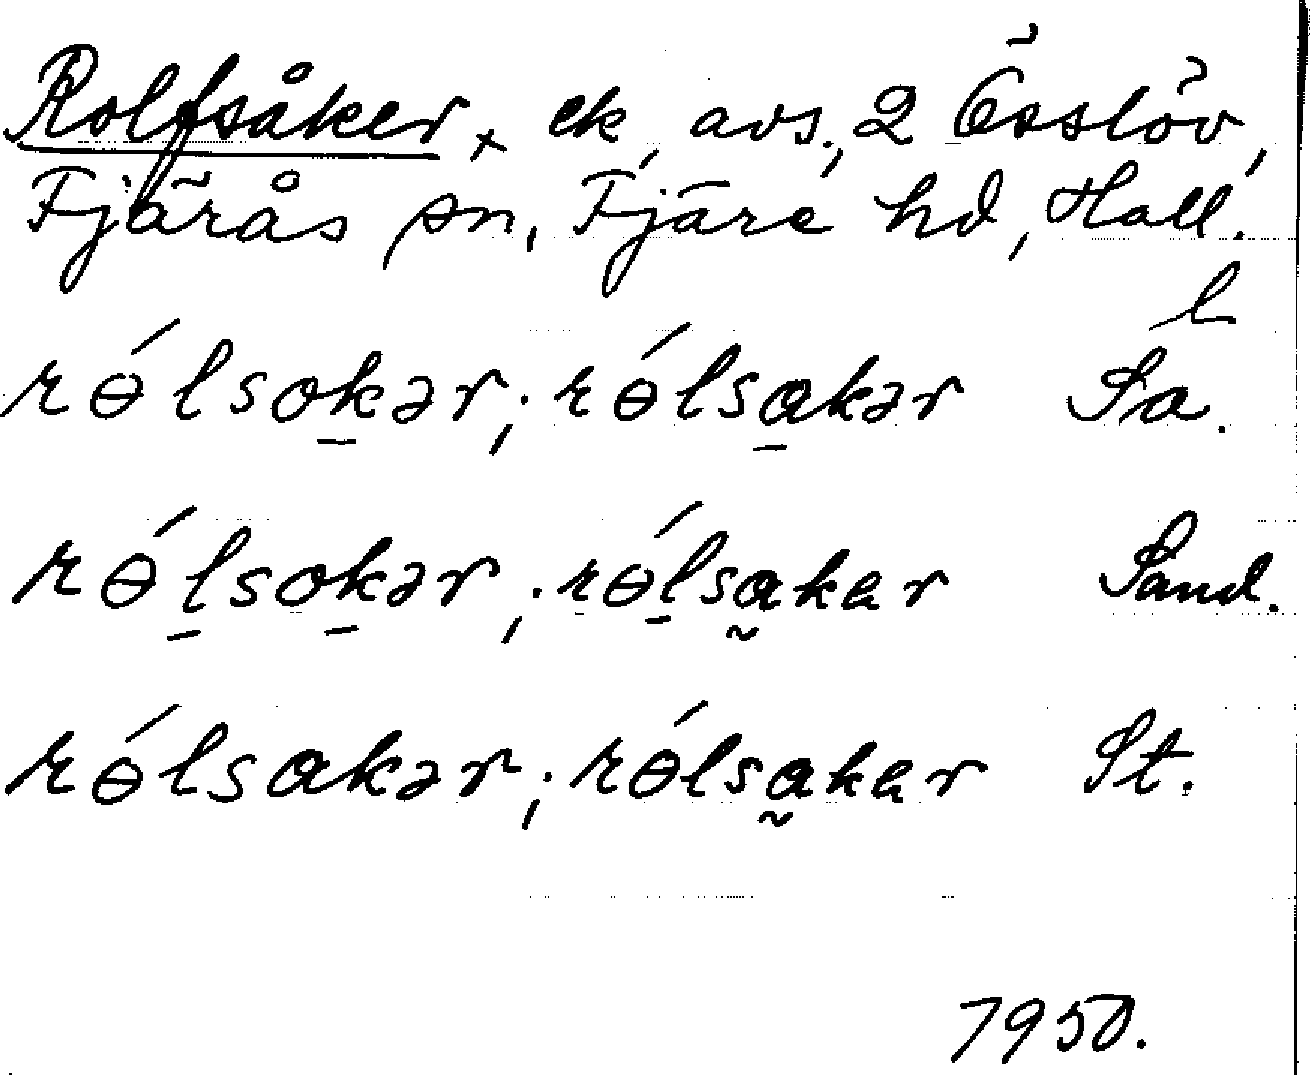 Rolfsåker, ek, avs., 2 Össlöv,
Fjärås sn, Fjäre hd, Hall.
l
rɵ́lsok̠ər; rɵ́lsa̠kər Sa.
rɵ́l̠sok̠ər; rɵ́l̠sa̰kar Sand.
rɵ́lsakər; rɵ́lsa̰kar St.
1950.